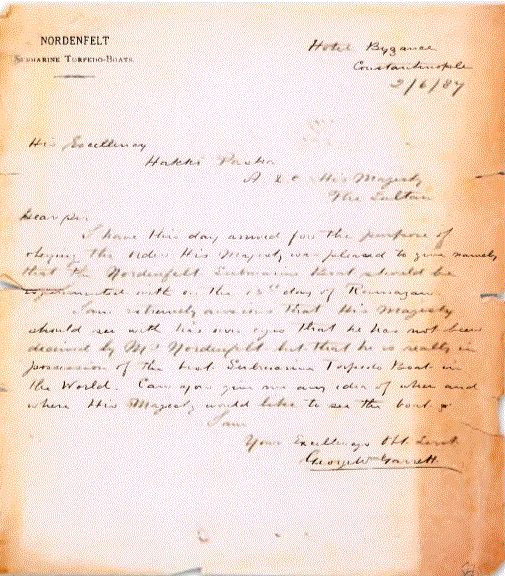 NORDENFELT
SUBMARINE TORPEDO-BOATS.
Hotel Byzance
Constantinople
2/6/87
His Excellency
Hakki Pasha
A D C His Majesty
The Sultan
Dear Sir
I have this day arrived for the purpose of
obeying the orders His Majesty was pleased to give namely
that the Nordenfelt Submarine Boat should be
experimented with on the 15th day of Ramazan
I am extremely anxious that His Majesty
should see with his own eyes that he has not been
deceived by Mr Nordenfelt but that he is really in
possession of the best Submarine Torpedo Boat in
the World. Can you give me any idea of when and
where His Majesty would like to see the boat.
I am
Your Excellencys Obt Servt
George Wm Garrett